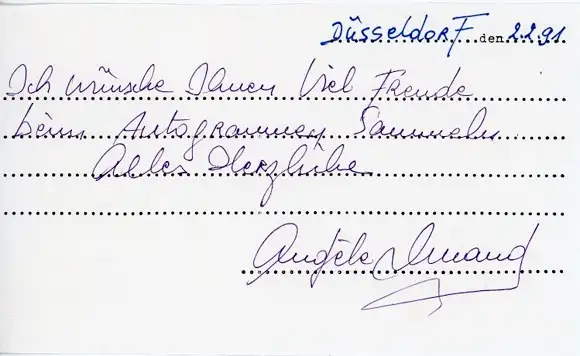 Düsseldorf den 2.2.91
Ich wünsche Ihnen viel Freude
beim Autogrammen Sammeln
Alles Herzliche
Angèle Durand